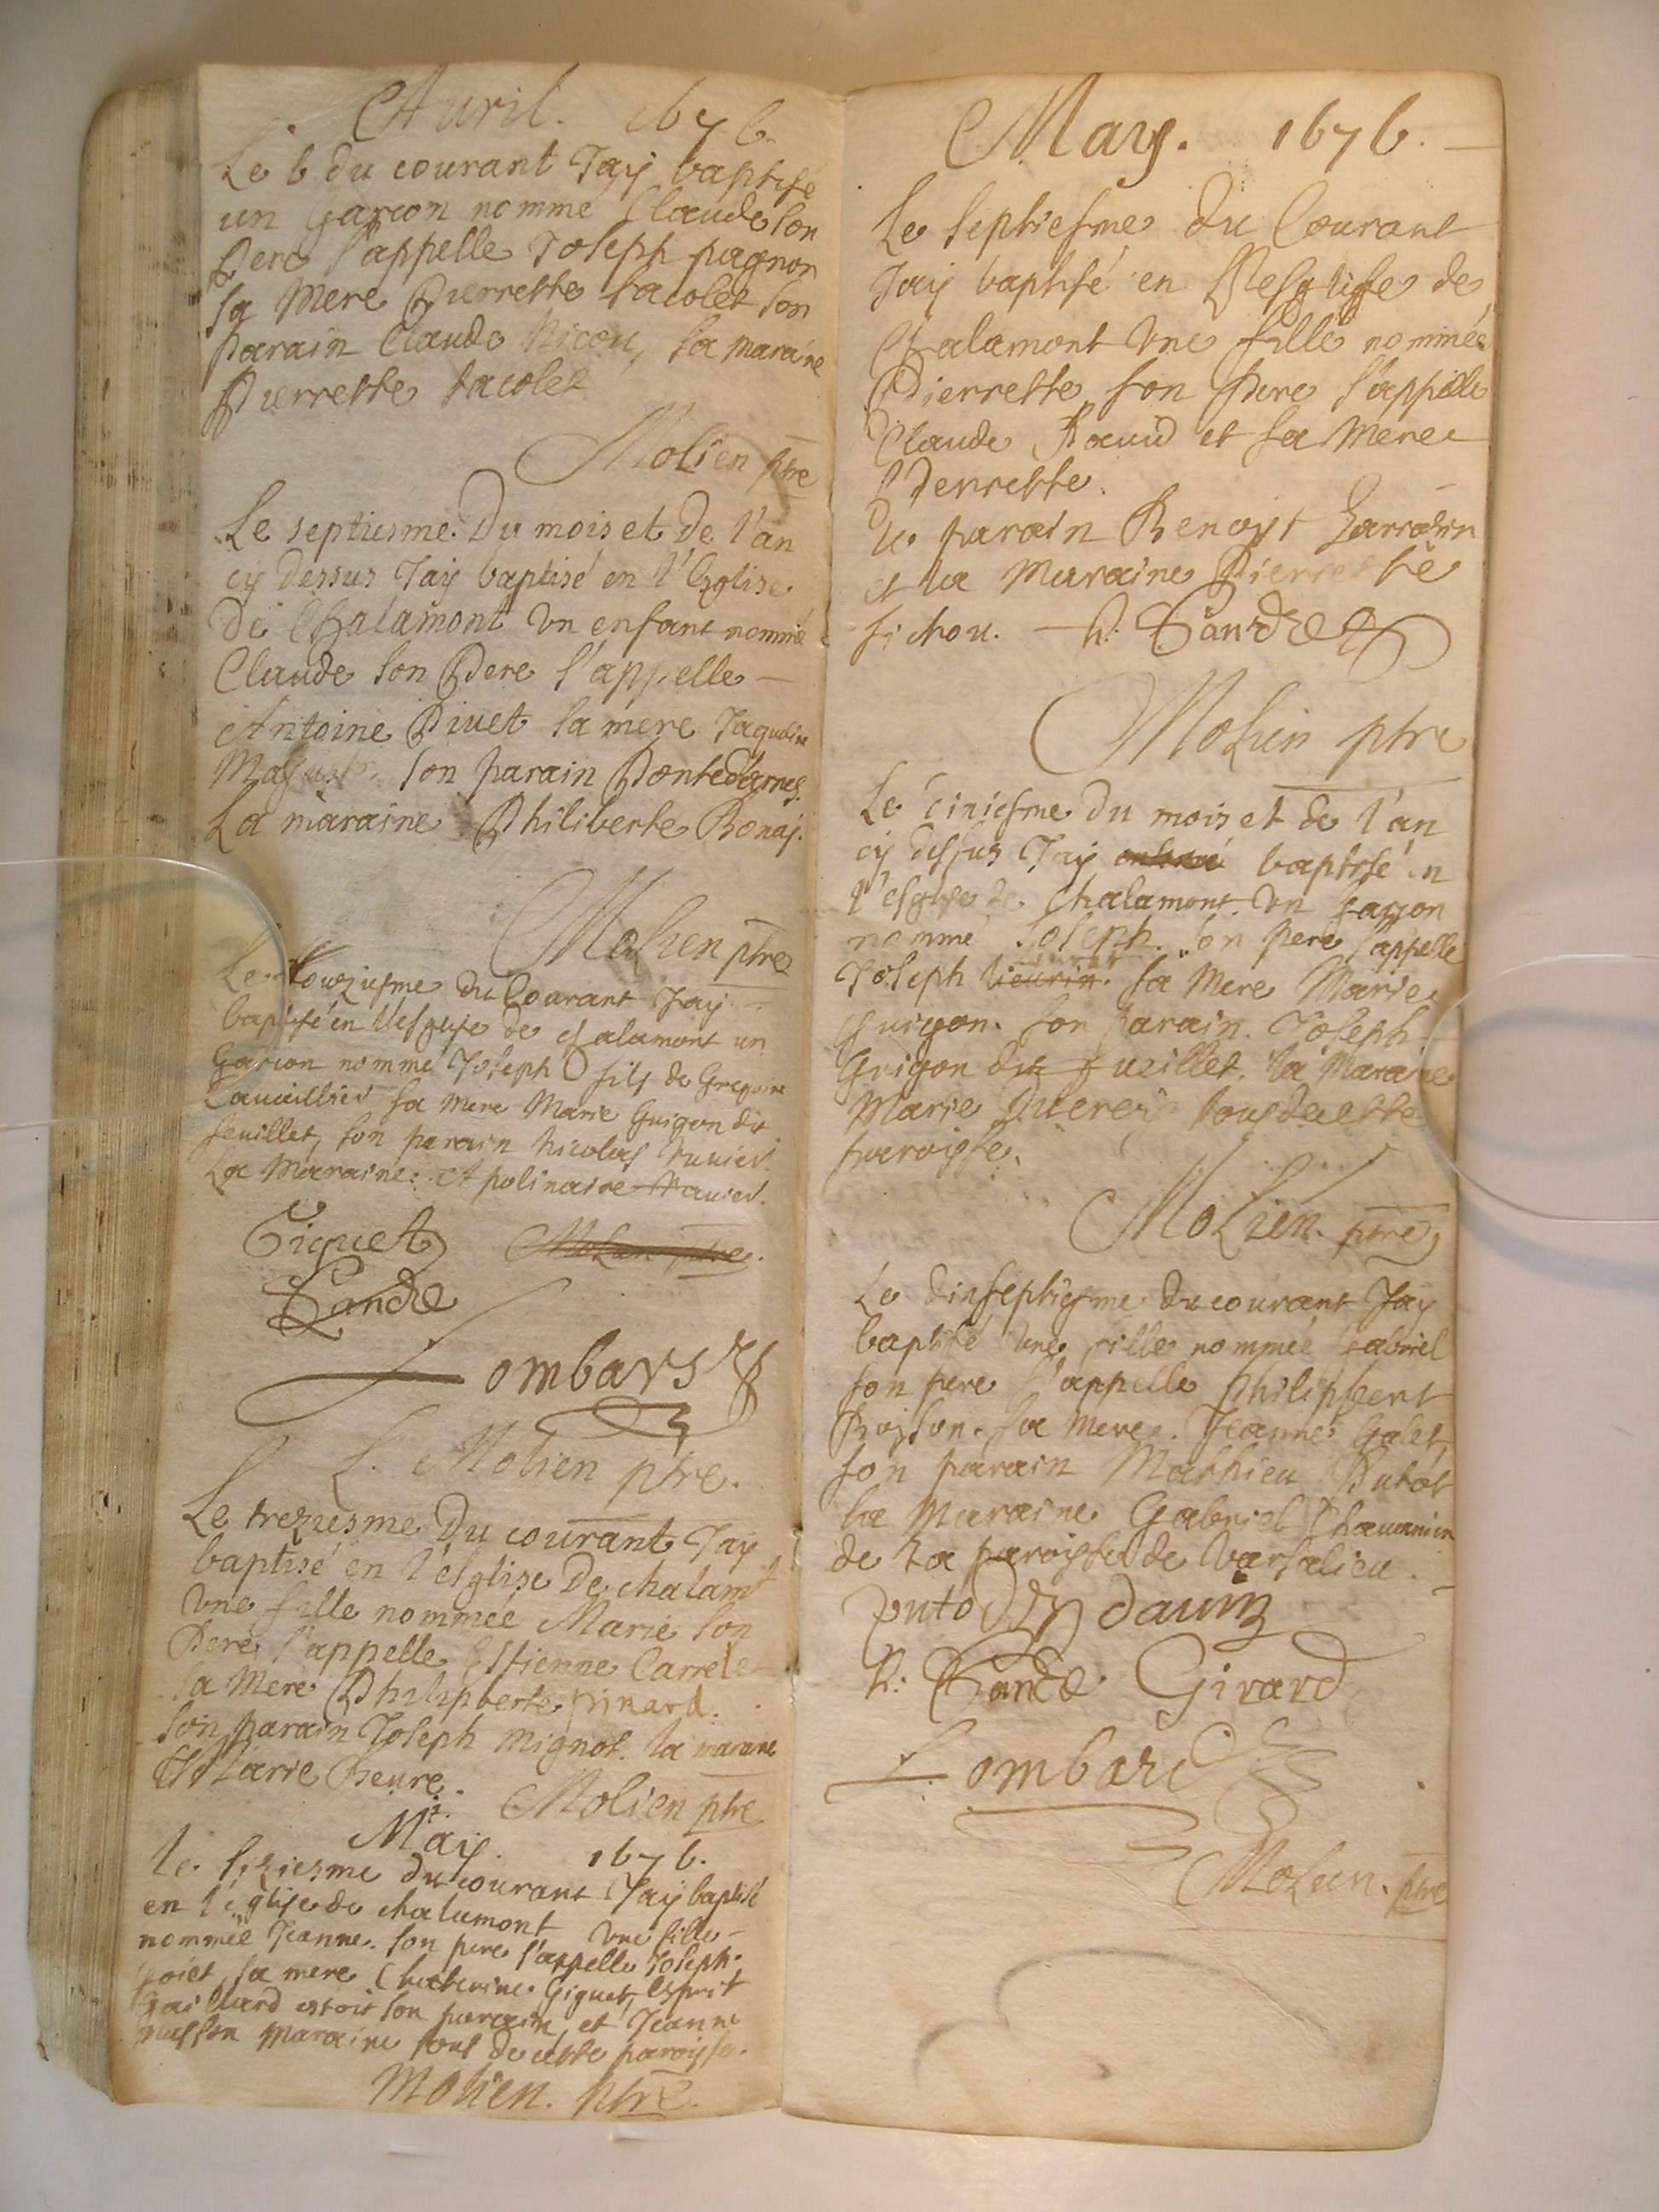 Auril. 1676
Le 6 du courant Jay baptisé
un Garcon nommé Claude son
Pere s'appelle Joseph pagnon
sa Mere Pierrette Jacolet son
Parain Claude Nicou, sa maraine
Pierrette Jacolet
Molien ptre
Le septiesme Du mois et De l'an
cy Dessus Jay baptisé en l'Eglise
De Chalamont vn enfant nommé
Claude son Pere s'appelle
Antoine Piuet sa mere
son parain Pontedarnes.
La maraine Philiberte Bonaj.
Molien ptre
Le douziesme du Courant Jay
baptisé en l'esglise de chalamont un
Garcon nommé Joseph fils de Gregoire
sa Mere Marie Guigon dit
feuillet, son parain Nicolas
La Maraine Apolinaire
Giguet Molien ptre.
Lombard
L. Molien ptre.
Le treziesme Du courant Jay
baptisé en l'esglise De chalamt
vne fille nommée Marie son
Pere s'appelle Estienne Carrele
sa Mere Philipberte pinard.
son parain Joseph Mignot. la maraine
Marie Beure. Molien ptre
May. 1676.
le siziesme du courant Jay baptisé
en l'eglise de chalamont vne fille
nommée Jeanne. son pere s'appelle Joseph
sa mere Chatherine Giguet, Esprit
Gaillard estoit son parain, et Jeanne
maraine tous de cette paroisse.
Molien. ptre.
May. 1676.
Le septiesme du Courant
Jay baptisé en l'Esglise de
Chalamont vne fille nommée
Pierrette son Pere s'appelle
Claude Rauid et sa Mere
Pierrette.
le parain Benoyst
et la Maraine Pierrette
fichou.
Molien ptre
Le du mois et de l'an
cy dessus Jay baptisé en
l'esglise de Chalamont vn garçon
nommé Joseph. son pere s'appelle
Joseph sa Mere Marie
Guigon. son parain. Joseph
Guigon dit feuillet. la Maraine
Marie tous de cette
paroisse.
Molien. ptre
Le dixseptiesme du courant Jay
baptisé vne fille nommée Gabriel
son pere s'appelle philipbert
Boyson. sa Mere. Jeanne Galet,
son parain Mathieu Putod
la Maraine Gabriel Chauanin
de la paroisse de Varsalieu.
putod
Girard
Lombard
Molien. ptre